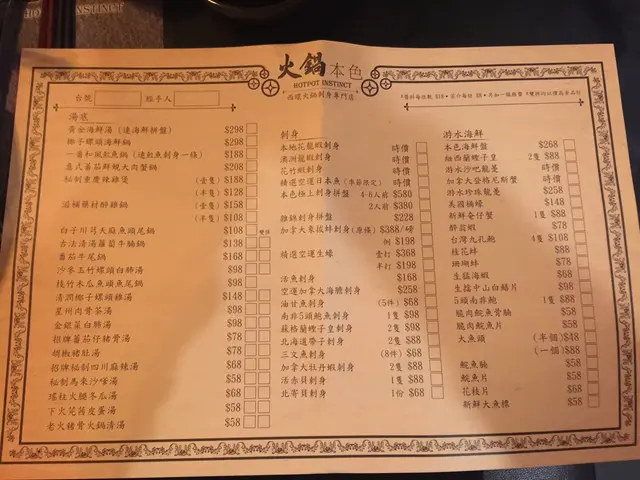 HOTPOT INSTINCT
火鍋本色
HOTPOT INSTINCT
西環火鍋刺身專門店
台號
經手人
湯底
黃金海鮮湯(連海鮮拼盤) $298
椰子螺頭海鮮鍋 $298
一番和風魷魚鍋(連魷魚刺身一條) $188
意式蕃茄鮮蜆大肉蟹鍋 $208
秘制重慶辣雞煲 (隻) $188
(半隻) $128
滋補藥材醉雞鍋 (隻) $158
(半隻) $108
白子川芎天麻魚頭尾鍋 $108
雙併
古法清湯蘿蔔牛腩鍋 $138
番茄牛尾鍋 $168
沙參玉竹螺頭白肺湯 $98
枝竹木瓜魚頭魚尾鍋 $98
清潤椰子螺頭雞湯 $148
星州肉骨茶湯 $98
金銀菜白肺湯 $98
招牌蕃茄仔豬骨湯 $78
胡椒豬肚湯 $78
招牌秘制四川麻辣湯 $68
秘制馬來沙嗲湯 $58
瑤柱火腿冬瓜湯 $68
下火芫荽皮蛋湯 $58
老火豬骨火鍋清湯 $58
刺身
本地花龍蝦刺身 時價
澳洲龍蝦刺身 時價
花竹蝦刺身 時價
精選空運日本魚(季節限定) 時價
本色極上刺身拼盤 4-6人前 $580
2人前 $380
雜錦刺身拼盤 $228
加拿大象拔蚌刺身(原條) $388/磅
例 $198
精選空運生蠔 套打 $368
半打 $198
活魚刺身 $168
空運加拿大海膽刺身 $258
油甘魚刺身 (5件) $68
南非5頭鮑魚刺身 1隻 $98
蘇格蘭蟶子皇刺身 2隻 $98
北海道帶子刺身 2隻 $88
三文魚刺身 (8件) $68
加拿大牡丹蝦刺身 2隻 $88
活赤貝刺身 1隻 $88
北寄貝刺身 1份 $68
游水海鮮
本色海鮮盤 $268
紐西蘭蟶子皇 2隻 $88
游水沙巴龍躉 $98
加拿大皇帝尼斯蟹 時價
游水珍珠龍躉 $258
美國桶蠔 $148
新鮮奇仔蟹 1隻 $88
醉翁蝦 $78
台灣九孔鮑 4隻 $108
桂花蚌 $88
珊瑚蚌 $78
生猛海蝦 $68
生擋中山白鱔片 $98
5頭南非鮑 1隻 $88
脆肉鯇魚骨腩 $58
脆肉鯇魚片 $58
大魚頭 (半個) $48
(一個) $88
鯇魚腩 $58
鯇魚片 $58
花枝片 $68
新鮮大魚標 $58